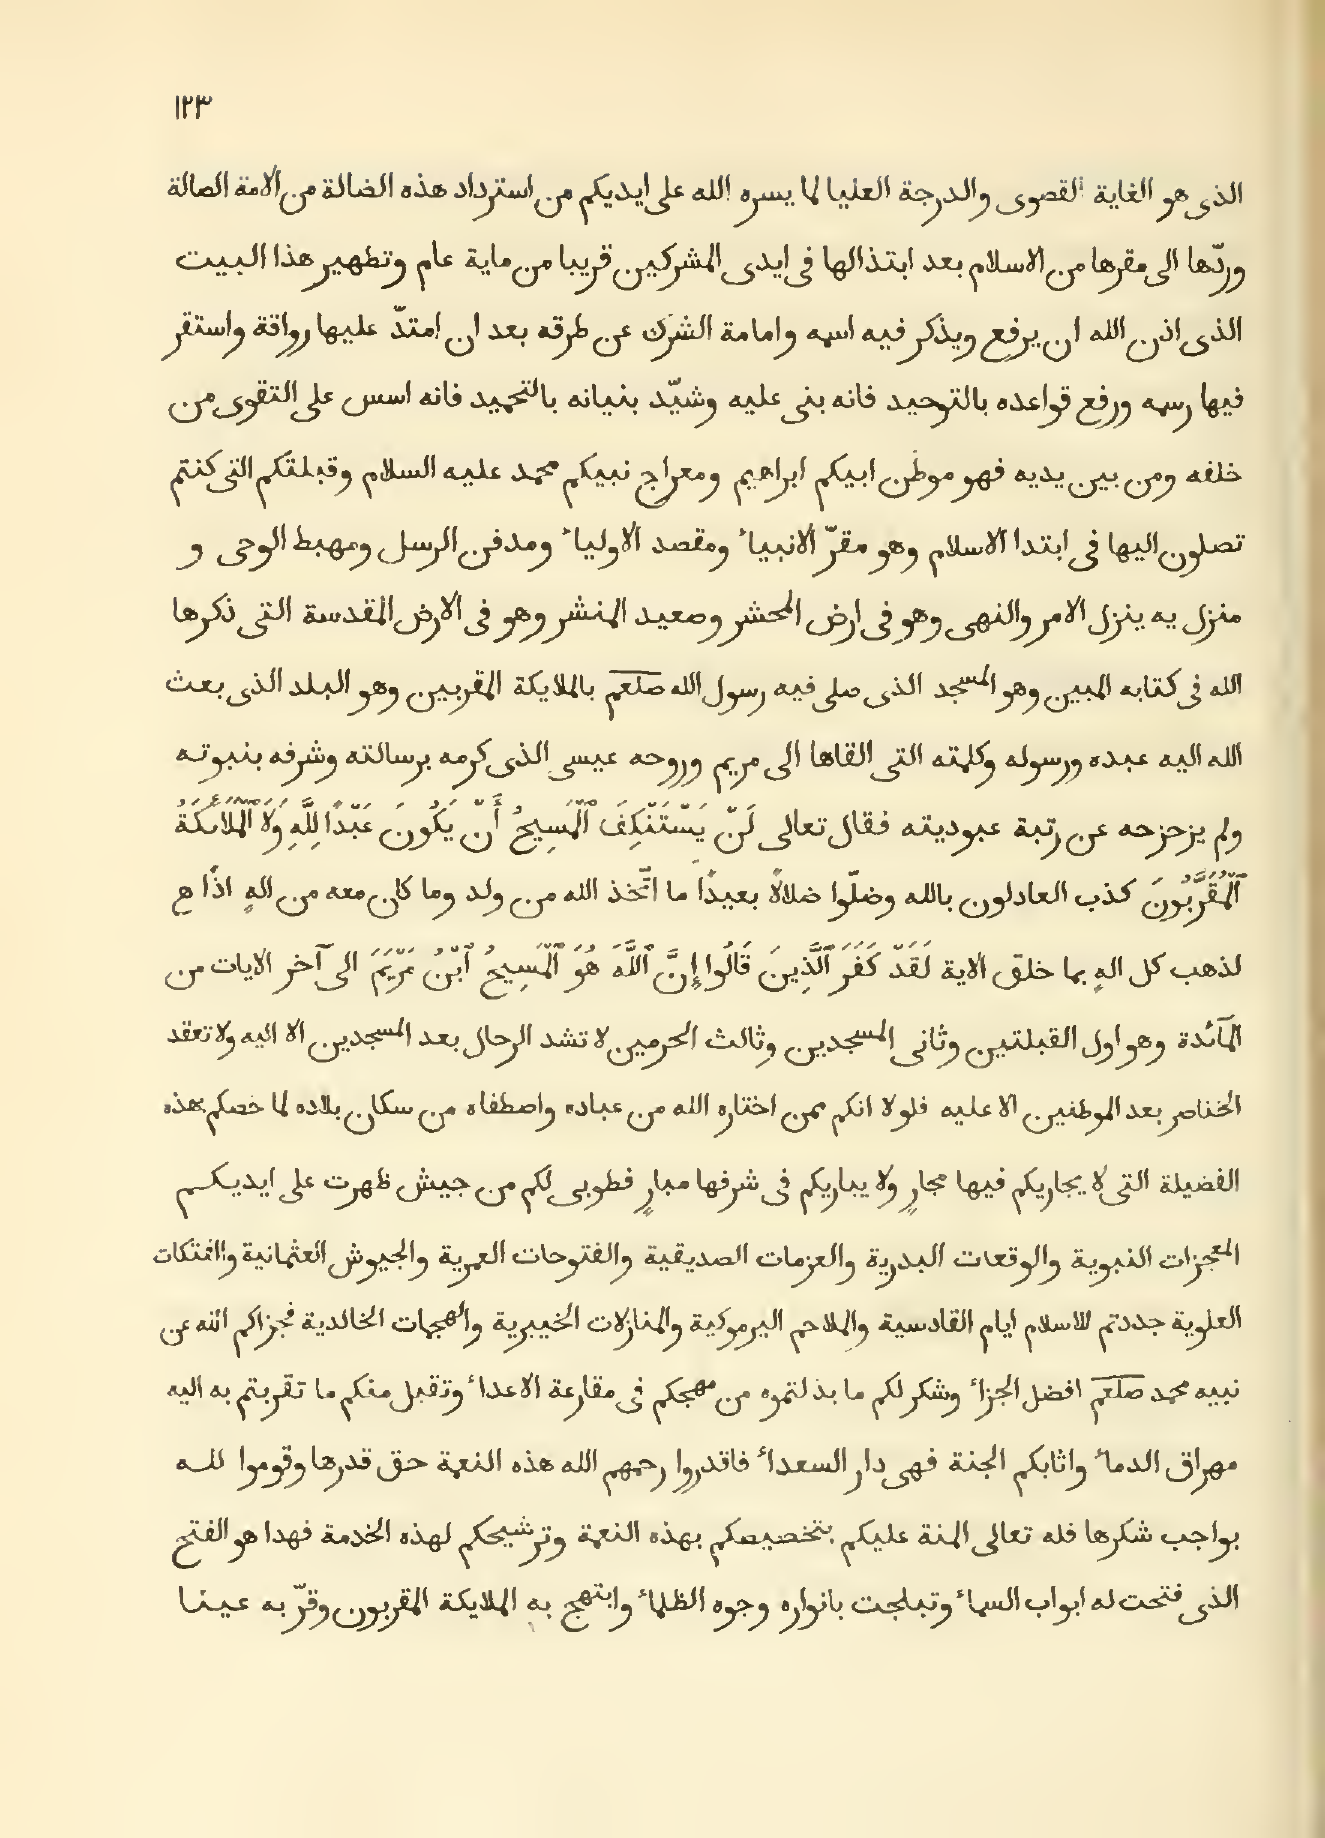 ١٢٣
الذى هو الغاية القصوى والدرجة العليا لما يسره الله على ايديكم من استرداد هذه الضالة من الامة الصالة
وردّها الى مقرها من الاسلام بعد ابتذالها فى ايدى المشركين قريبا من ماية عام وتطهير هذا البيت
الذى اذن الله ان يرفع ويذكر فيه اسمه وامامة الشرك عن طرقه بعد ان امتدّ عليها رواقة واستقر
فيها رسمه ورفع قواعده بالتوحيد فانه بنى عليه وشيّد بنيانه بالتحميد فانه اسس على التقوى من
خلفه ومن بين يديه فهو موطن ابيكم ابراهيم ومعراج نبيكم محمد عليه السلام وقبلتكم التى كنتم
تصلون اليها فى ابتدا الاسلام وهو مقرّ الانبياء ومقصد الاولياء ومدفن الرسل ومهبط الوحى و
منزل يه ينزل الامر والنهى وهو فى ارض المحشر وصعيد المنشر وهو فى الارض المقدسة التى ذكرها
الله فى كتابه المبين وهو المسجد الذى صلى فيه رسول الله صلعم بالملايكة المقربين وهو البلد الذى بعث
الله اليه عبده ورسوله وكلمته التى القاها الى مريم وروحه عيسى الذى كرمه برسالته وشرفه بنبوته
ولم يزحزحه عن رتبة عبوديته فقال تعالى لَنْ يَسْتَنْكِفَ ٱلْمَسِيحُ أَنْ يَكُونَ عَبْدًا لِلَّهِ وَلَا ٱلْمَلَائِكَةُ
ٱلْمُقَرَّبُونَ كذب العادلون بالله وضلّوا ضلالًا بعيدًا ما اتّخذ الله من ولد وما كان معه من الهٍ اذًا ﻫ
لذهب كل الهٍ بما خلق الاية لَقَدْ كَفَرَ ٱلَّذِينَ قَالُوا إِنَّ ٱللَّهَ هُوَ ٱلْمَسِيحُ ٱبْنُ مَرْيَمَ الى آخر الايات من
المآئدة وهو اول القبلتين وثانى المسجدين وثالث الحرمين لا تشد الرحال بعد المسجدين الا اليه ولا تعقد
الخناصر بعد الموطنين الا عليه فلولا انكم ممن اختاره الله من عباده واصطفاه من سكان بلاده لما خصكم بهذه
الفضيلة التى لا يجاريكم فيها مجارٍ ولا يباريكم فى شرفها مبارٍ فطوبى لكم من جيش ظهرت على ايديكم
المعجزات النبوية والوقعات البدرية والعزمات الصديقية والفتوحات العمرية والجيوش العثمانية والفتكات
العلوية جددتم للاسلام ايام القادسية والملاحم اليرموكية والمنازلات الخيبرية والهجمات الخالدية فجزاكم الله عن
نبيه محمد صلعم افضل الجزاء وشكر لكم ما بذلتموه من مهجكم فى مقارعة الاعداء وتقبل منكم ما تقربتم به اليه
مهراق الدماء واثابكم الجنة فهى دار السعداء فاقدروا رحمهم الله هذه النعمة حق قدرها وقوموا لله
بواجب شكرها فله تعالى المنة عليكم بتخصيصكم بهذه النعمة وترشيحكم لهذه الخدمة فهدا هو الفتح
الذى فتحت له ابواب السماء وتبلجت بانواره وجوه الظلماء وابتهج به الملايكة المقربون وقرّ به عينا